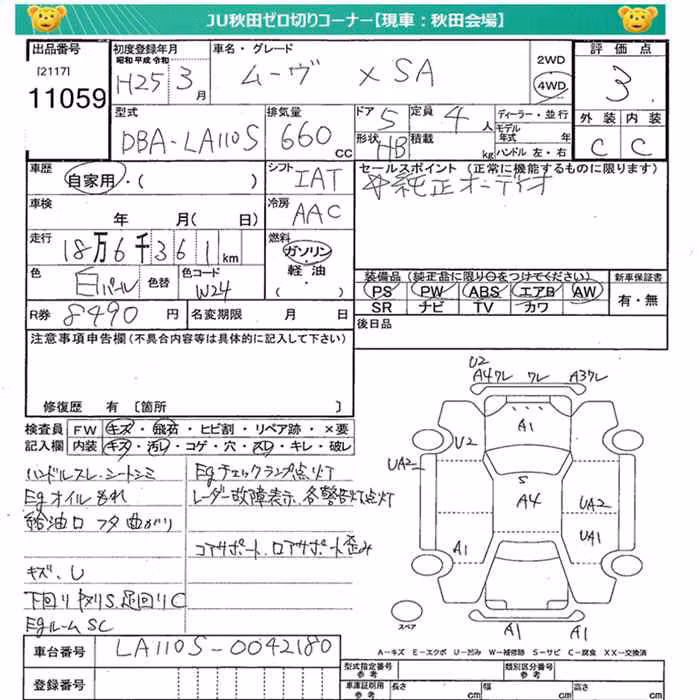 JU秋田ゼロ切りコーナー【現車：秋田会場】
出品番号 [2117] 11059
初度登録年月 昭和 平成 令和 H25 3月
車名・グレード ムーヴ X SA
2WD 4WD
評価点 3
外装 C 内装 C
型式 DBA-LA110S
排気量 660 CC
ドア 5 定員 4人
形状 HB 積載 kg
ディーラー・並行
モデル年式 年
ハンドル 左・右
車歴 自家用・( )
シフト IAT
セールスポイント (正常に機能するものに限ります)
純正オーディオ
車検 年 月(日)
冷房 AAC
走行 18万6千361km
燃料 ガソリン・軽油・( )
色 白パール 色替 色コード W24
装備品(純正品に限り○をつけてください) 新車保証書
PS PW ABS エアB AW 有・無
SR ナビ TV カワ
R券 8490円 名変期限 月 日
後日品
注意事項申告欄(不具合内容等は具体的に記入して下さい)
修復歴 有 [箇所 ]
検査員 FW キズ・飛石・ヒビ割・リペア跡・×要
記入欄 内装 キズ・汚レ・コゲ・穴・スレ・キレ・破レ
ハンドルスレ・シートシミ
Egオイルもれ
給油口フタ曲がり
キズ、U
下回りサビS、足回りC
EgルームSC
Egチェックランプ点灯
レーダー故障表示、各警告灯点灯
コアサポート、ロアサポート歪み
U2
A4ワレ ワレ A3ワレ
A1
U2
UA2
S
A4
UA2
A1
UA1
A1 A1
スペア
A－キズ E－エクボ U－凹み W－補修跡 S－サビ C－腐食 XX－交換済
車台番号 LA110S-0042180
登録番号
型式指定番号 参考 類別区分番号 参考
車庫証明用 参考 長さ cm 幅 cm 高さ cm